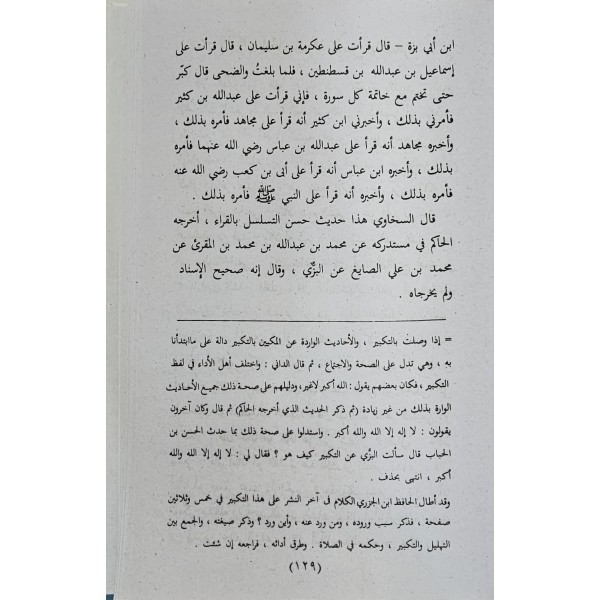 ابن أبي بزة – قال قرأت على عكرمة بن سليمان ، قال قرأت على
إسماعيل بن عبدالله بن قسطنطين ، فلما بلغتُ والضحى قال كبّر
حتى تختم مع خاتمة كل سورة ، فإني قرأت على عبدالله بن كثير
فأمرني بذلك ، وأخبرني ابن كثير أنه قرأ على مجاهد فأمره بذلك ،
وأخبره مجاهد أنه قرأ على عبدالله بن عباس رضي الله عنهما فأمره
بذلك ، وأخبره ابن عباس أنه قرأ على أبى بن كعب رضي الله عنه
فأمره بذلك ، وأخبره أنه قرأ على النبي ﷺ فأمره بذلك .
قال السخاوي هذا حديث حسن التسلسل بالقراء ، أخرجه
الحاكم في مستدركه عن محمد بن عبدالله بن محمد بن المقرئ عن
محمد بن علي الصايغ عن البزِّي ، وقال إنه صحيح الإسناد
ولم يخرجاه .
= إذا وصلتَ بالتكبير ، والأحاديث الواردة عن المكيين بالتكبير دالة على ماابتدأنا
به ، وهي تدل على الصحة والاجتماع ، ثم قال الداني : واختلف أهل الأداء في لفظ
التكبير ، فكان بعضهم يقول : الله أكبر لاغير، ودليلهم على صحة ذلك جميع الأحاديث
الوارة بذلك من غير زيادة (ثم ذكر الحديث الذي أخرجه الحاكم) ثم قال وكان آخرون
يقولون : لا إله إلا الله والله أكبر . واستدلوا على صحة ذلك بما حدث الحسن بن
الحباب قال سألت البزِّي عن التكبير كيف هو ؟ فقال لي : لا إله إلا الله والله
أكبر ، انتهى بحذف .
وقد أطال الحافظ ابن الجزري الكلام فى آخر النشر على هذا التكبير في خمس وثلاثين
صفحة ، فذكر سبب وروده ، ومن ورد عنه ، وأين ورد ؟ وذكر صيغته ، والجمع بين
التهليل والتكبير ، وحكمه في الصلاة . وطرق أدائه ، فراجعه إن شئت .
(١٢٩)